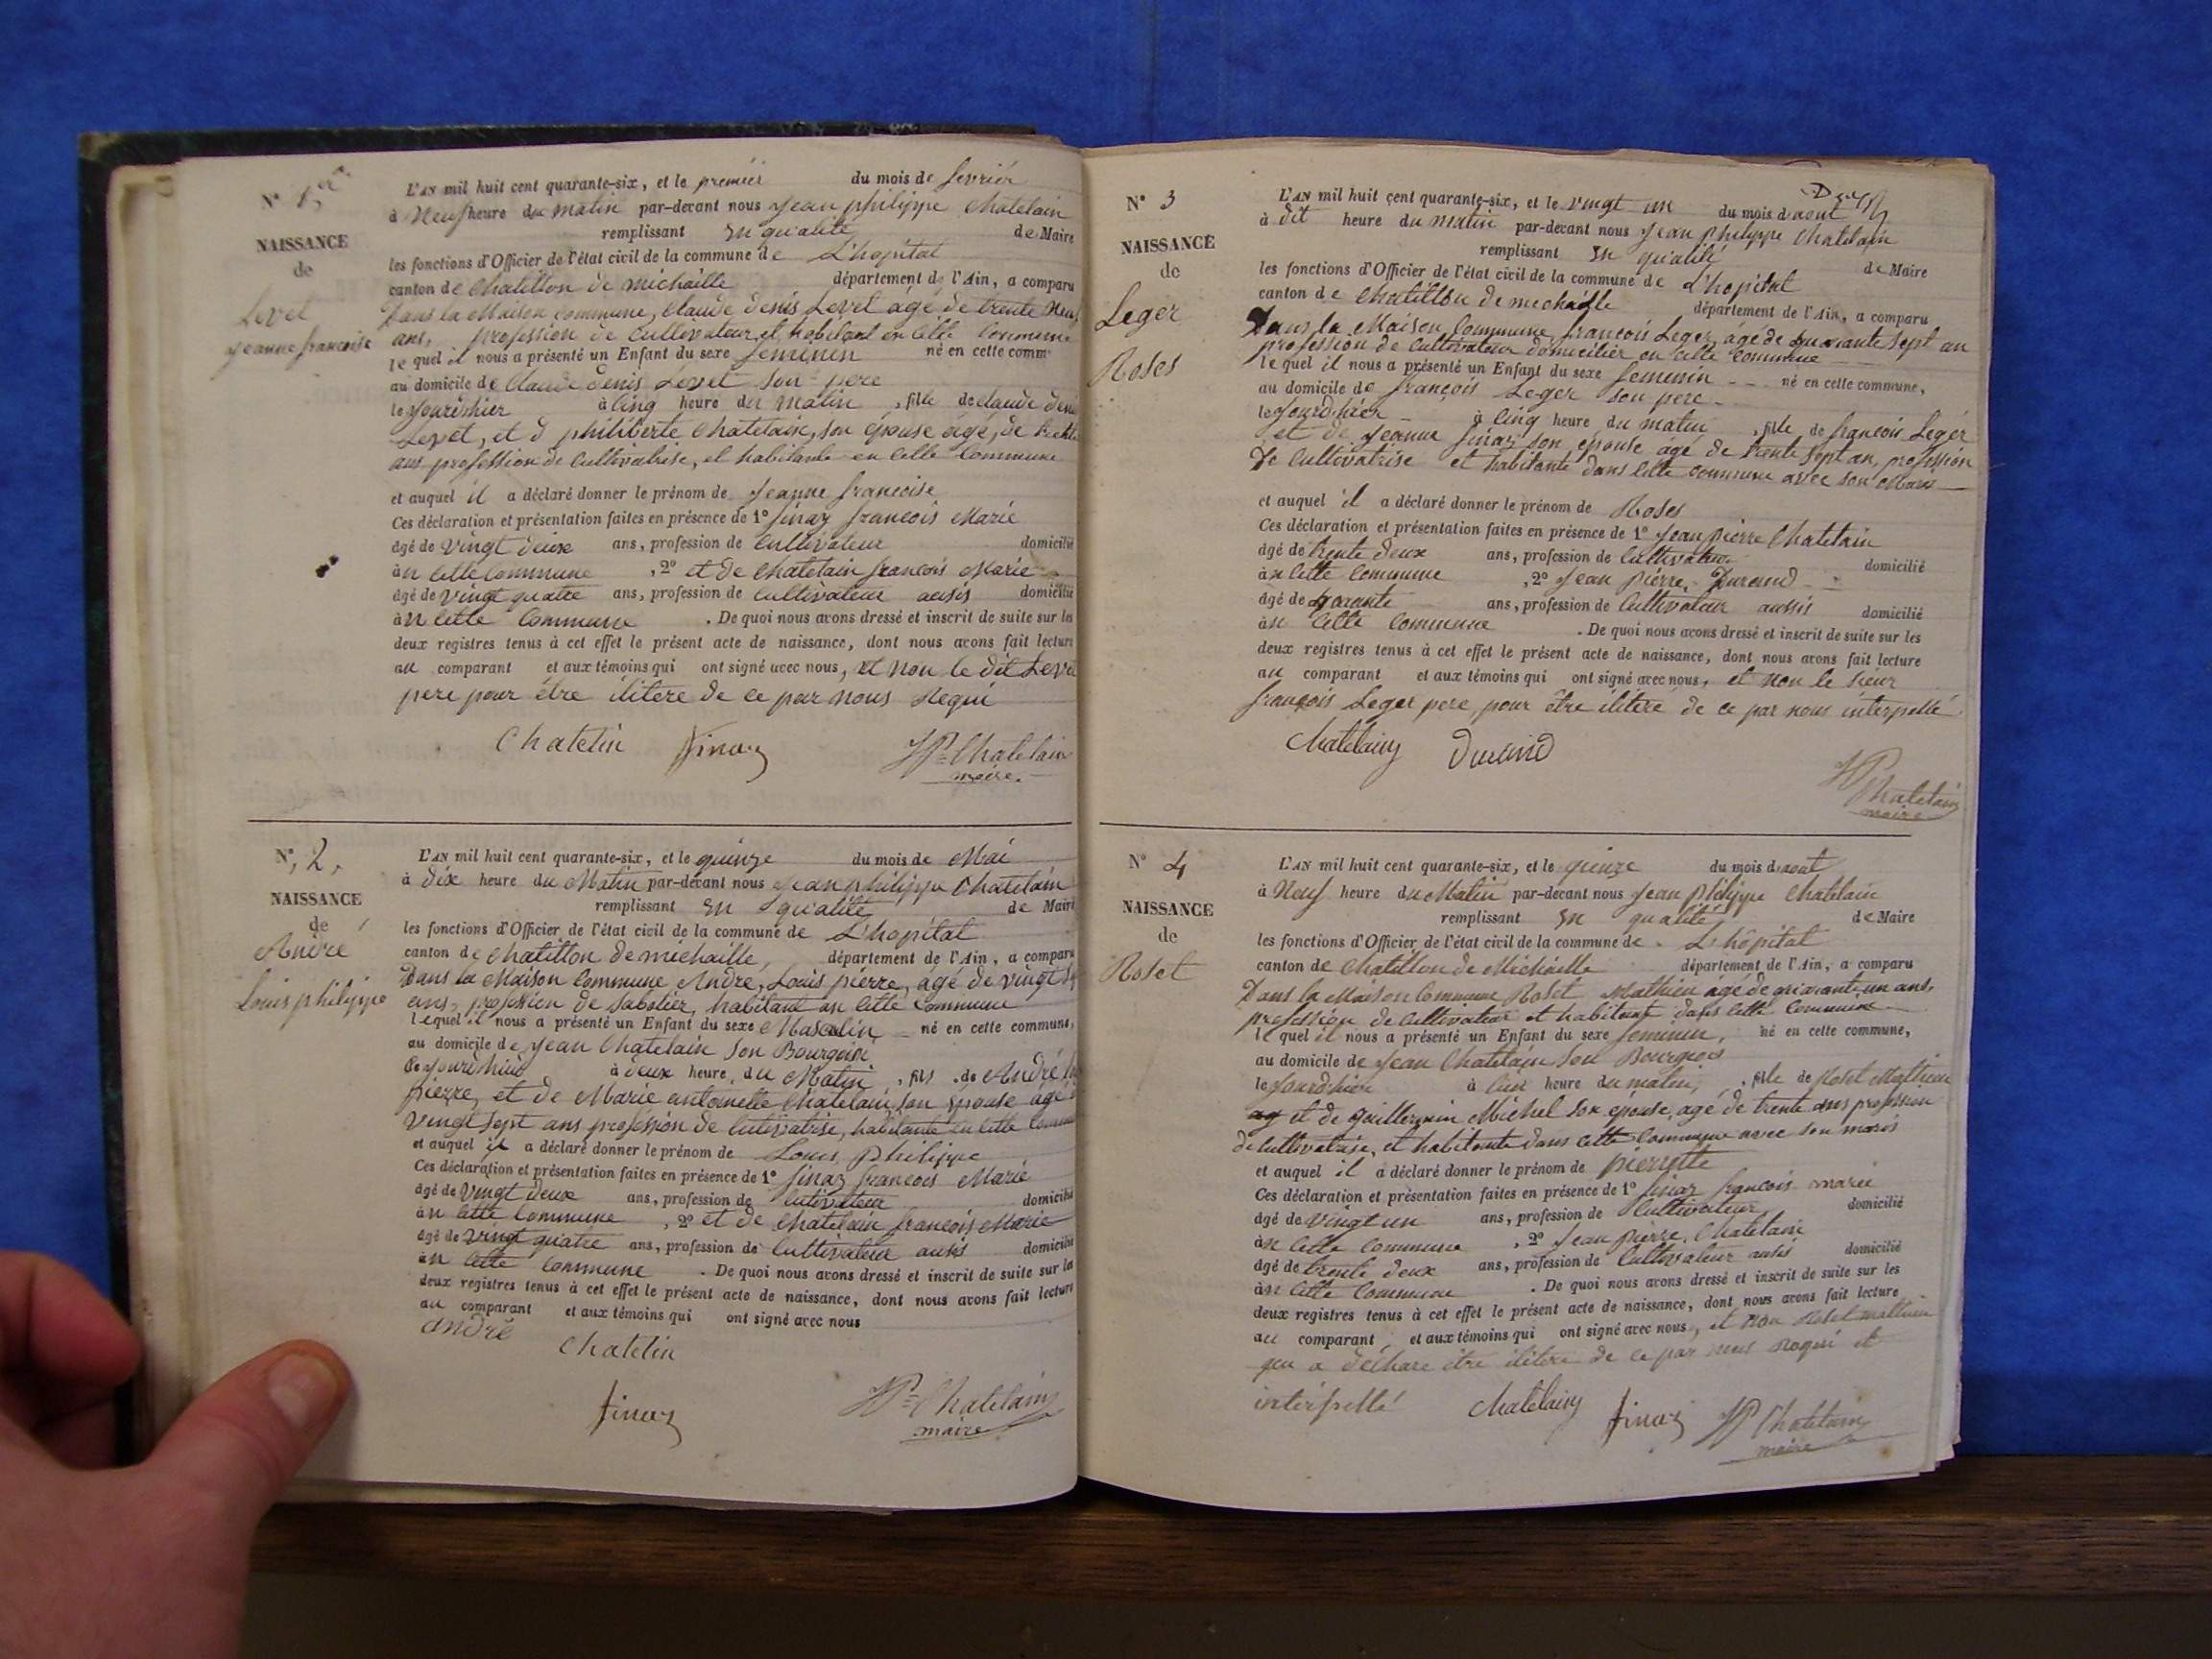 N° 1er
NAISSANCE
de
Levet
Jeanne francoise
L'AN mil huit cent quarante-six, et le premiér du mois de fevriér
à Neuf heure du matin par-devant nous Jean philippe Chatelain
remplissant En qualité de Maire
les fonctions d'Officier de l'état civil de la commune de L'hopital
canton de Chatillon de michaille département de l'Ain, a comparu
Dans la Maison Commune, Claude denis Levet agé de trente Neuf
ans, profession de Cultivateur et habitant en cette Commune
le quel il nous a présenté un Enfant du sexe feminin né en cette comm
au domicile de Claude denis Levet son pere
le jourd'hier à Cinq heure du matin , fille de claude denis
Levet, et d philiberte Chatelain, son épouse agé, de trente
ans profession de Cultivatrise, et habitante en Cette Commune
et auquel il a déclaré donner le prénom de Jeanne francoise
Ces déclaration et présentation faites en présence de 1° finaz francois Marie
âgé de vingt deux ans, profession de Cultivateur domicilié
àn Cette Commune , 2° et de Chatelain francois Marie
âgé de vingt quatre ans, profession de Cultivateur ausis domicilié
àn Cette Commune . De quoi nous avons dressé et inscrit de suite sur les
deux registres tenus à cet effet le présent acte de naissance, dont nous avons fait lecture
au comparant et aux témoins qui ont signé avec nous, et non le dit Leve
pere pour être ilitere de ce par nous requi
Chatelin finaz JP Chatelain
maire
N° 2,
NAISSANCE
de
André
Louis philippe
L'AN mil huit cent quarante-six, et le quinze du mois de Mai
à dix heure du Matin par-devant nous Jean philippe Chatelain
remplissant En qualité de Maire
les fonctions d'Officier de l'état civil de la commune de L'hopital
canton de Chatillon de michaille, département de l'Ain, a comparu
Dans la Maison Commune André, Louis piérre, agé de vingt
ans, profession de Sabotier, habitant en cette Commune
lequel il nous a présenté un Enfant du sexe Masculin né en cette commune,
au domicile de Jean Chatelain Son Bourgois
Le jourd'hui à deux heure du Matin , fils de André
pierre, et de Marie antoinette Chatelain, son épouse agé
vingt sept ans profession de Cutivatrise, habitante en cette Commu
et auquel il a déclaré donner le prénom de Louis Philippe
Ces déclaration et présentation faites en présence de 1° finaz francois Marie
âgé de vingt deux ans, profession de Cutivateur domicilié
àn Cette Commune , 2° et de Chatelain francois Marie
âgé de vingt quatre ans, profession de Cultivateur ausis domicilié
àn Cette Commune . De quoi nous avons dressé et inscrit de suite sur les
deux registres tenus à cet effet le présent acte de naissance, dont nous avons fait lecture
au comparant et aux témoins qui ont signé avec nous
andré Chatelin
finaz JP Chatelain
maire
N° 3
NAISSANCE
de
Leger
Roses
L'AN mil huit cent quarante-six, et le vingt un du mois d'aout
à dit heure du matin par-devant nous Jean philippe Chatelain
remplissant En qualité de Maire
les fonctions d'Officier de l'état civil de la commune de L'hopital
canton de Chatillon de mechaille département de l'Ain, a comparu
Dans la Maison Commune, francois Leger, agé de quarante sept an
profession de Cultivateur domicilier en Cette Commune
le quel il nous a présenté un Enfant du sexe feminin né en cette commune,
au domicile de françois Leger son pere
le jourd'hier à Cinq heure du matin , fille de francois Leger
et de Jeanne finaz son épouse agé de trente sept an, profession
De Cultivatrise et habitante dans Cette Commune avec son Maris
et auquel il a déclaré donner le prénom de Roses
Ces déclaration et présentation faites en présence de 1° Jean pierre Chatelain
âgé de trente deux ans, profession de Cultivateur domicilié
àn Cette Commune , 2° Jean piérre, Durand
âgé de quarante ans, profession de Cultivateur aussis domicilié
àn Cette Commune . De quoi nous avons dressé et inscrit de suite sur les
deux registres tenus à cet effet le présent acte de naissance, dont nous avons fait lecture
au comparant et aux témoins qui ont signé avec nous, et non le sieur
françois Leger pere pour être iliteré de ce par nous interpellé
Chatelain Durand
JP Chatelain
maire
N° 4
NAISSANCE
de
Roset
L'AN mil huit cent quarante-six, et le quinze du mois d'aout
à Neuf heure du Matin par-devant nous Jean philippe Chatelain
remplissant En qualité de Maire
les fonctions d'Officier de l'état civil de la commune de L'hôpital
canton de Chatillon de Michaille département de l'Ain, a comparu
Dans la Maison Commune Roset Mathieu agé de un ans,
profession de Cultivateur et habitant dans Cette Commune
le quel il nous a présenté un Enfant du sexe feminin, né en cette commune,
au domicile de Jean Chatelain son Bourgois
le jourd'hier à heure du matin, , fille de Roset Mathieu
et de Guillermin Michel son épouse, agé de trente ans profession
de Cultivatrise, et habitante dans Cette Commune avec son maris
et auquel il a déclaré donner le prénom de pierrette
Ces déclaration et présentation faites en présence de 1° finaz francois marie
âgé de vingt un ans, profession de Cultivateur domicilié
àn Cette Commune , 2° Jean piérre, Chatelain
âgé de trente deux ans, profession de Cultivateur ausis domicilié
àn Cette Commune . De quoi nous avons dressé et inscrit de suite sur les
deux registres tenus à cet effet le présent acte de naissance, dont nous avons fait lecture
au comparant et aux témoins qui ont signé avec nous, et non Roset mathieu
être ilitere de ce par nous requi et
interpellé Chatelain finaz JP Chatelain
maire